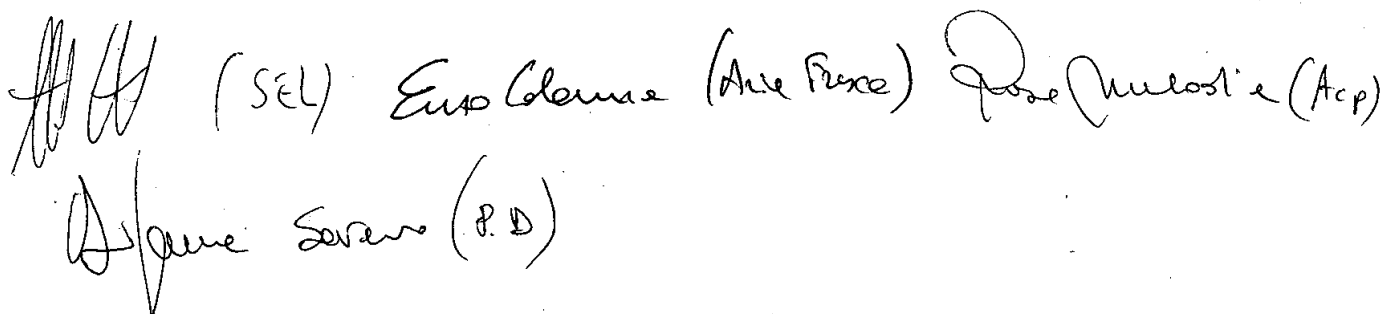 (SEL) Enzo Colonna (Aria Fresca) Rosa Melodia (Acp)
Saverio (P.D)